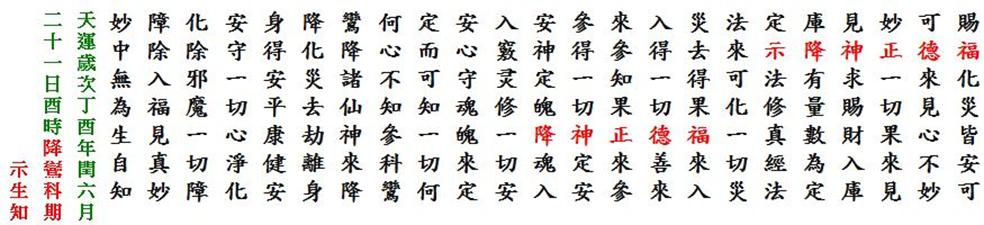 賜福化災皆安可
可德來見心不妙
妙正一切果來見
見神求賜財入庫
庫降有量數為定
定示法修真經法
法來可化一切災
災去得果福來入
入得一切德善來
來參知果正來參
參得一切神定安
安神定魄降魂入
入竅灵修一切安
安心守魂魄來定
定而可知一切何
何心不知參科鸞
鸞降諸仙神來降
降化災去劫離身
身得安平康健安
安守一切心淨化
化除邪魔一切障
障除入福見真妙
妙中無為生自知
天運歲次丁酉年閏六月
二十一日酉時降鸞科期
示生知